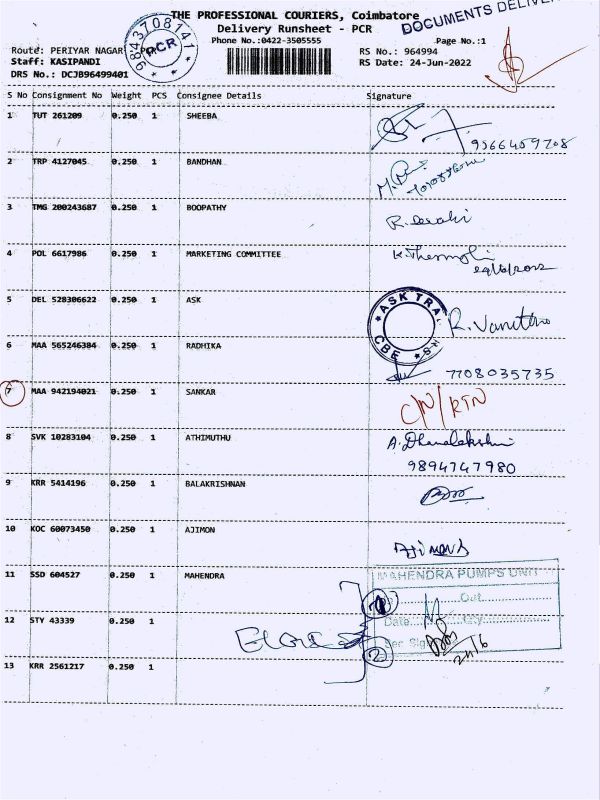 THE PROFESSIONAL COURIERS, Coimbatore
Delivery Runsheet - PCR
Phone No:0422-3505555
DOCUMENTS
9843708141
PCR
Route: PERIYAR NAGAR
Page No.:1
Staff: KASIPANDI
RS No.: 964994
DRS No.: DCJB96499401
RS Date: 24-Jun-2022
S No Consignment No Weight PCS Consignee Details Signature
1 TUT 261209 0.250 1 SHEEBA
2 TRP 4127045 0.250 1 BANDHAN
3 TMG 200243687 0.250 1 BOOPATHY
4 POL 6617986 0.250 1 MARKETING COMMITTEE
5 DEL 528306622 0.250 1 ASK
ASK TRA
CBE
6 MAA 565246384 0.250 1 RADHIKA
7708035735
7 MAA 942194021 0.250 1 SANKAR
8 SVK 10283104 0.250 1 ATHIMUTHU A. Dhanalakshmi
9894747980
9 KRR 5414196 0.250 1 BALAKRISHNAN
10 KOC 60073450 0.250 1 AJIMON
11 SSD 604527 0.250 1 MAHENDRA
MAHENDRA PUMPS UNIT
Out
Date
12 STY 43339 0.250 1
13 KRR 2561217 0.250 1
2